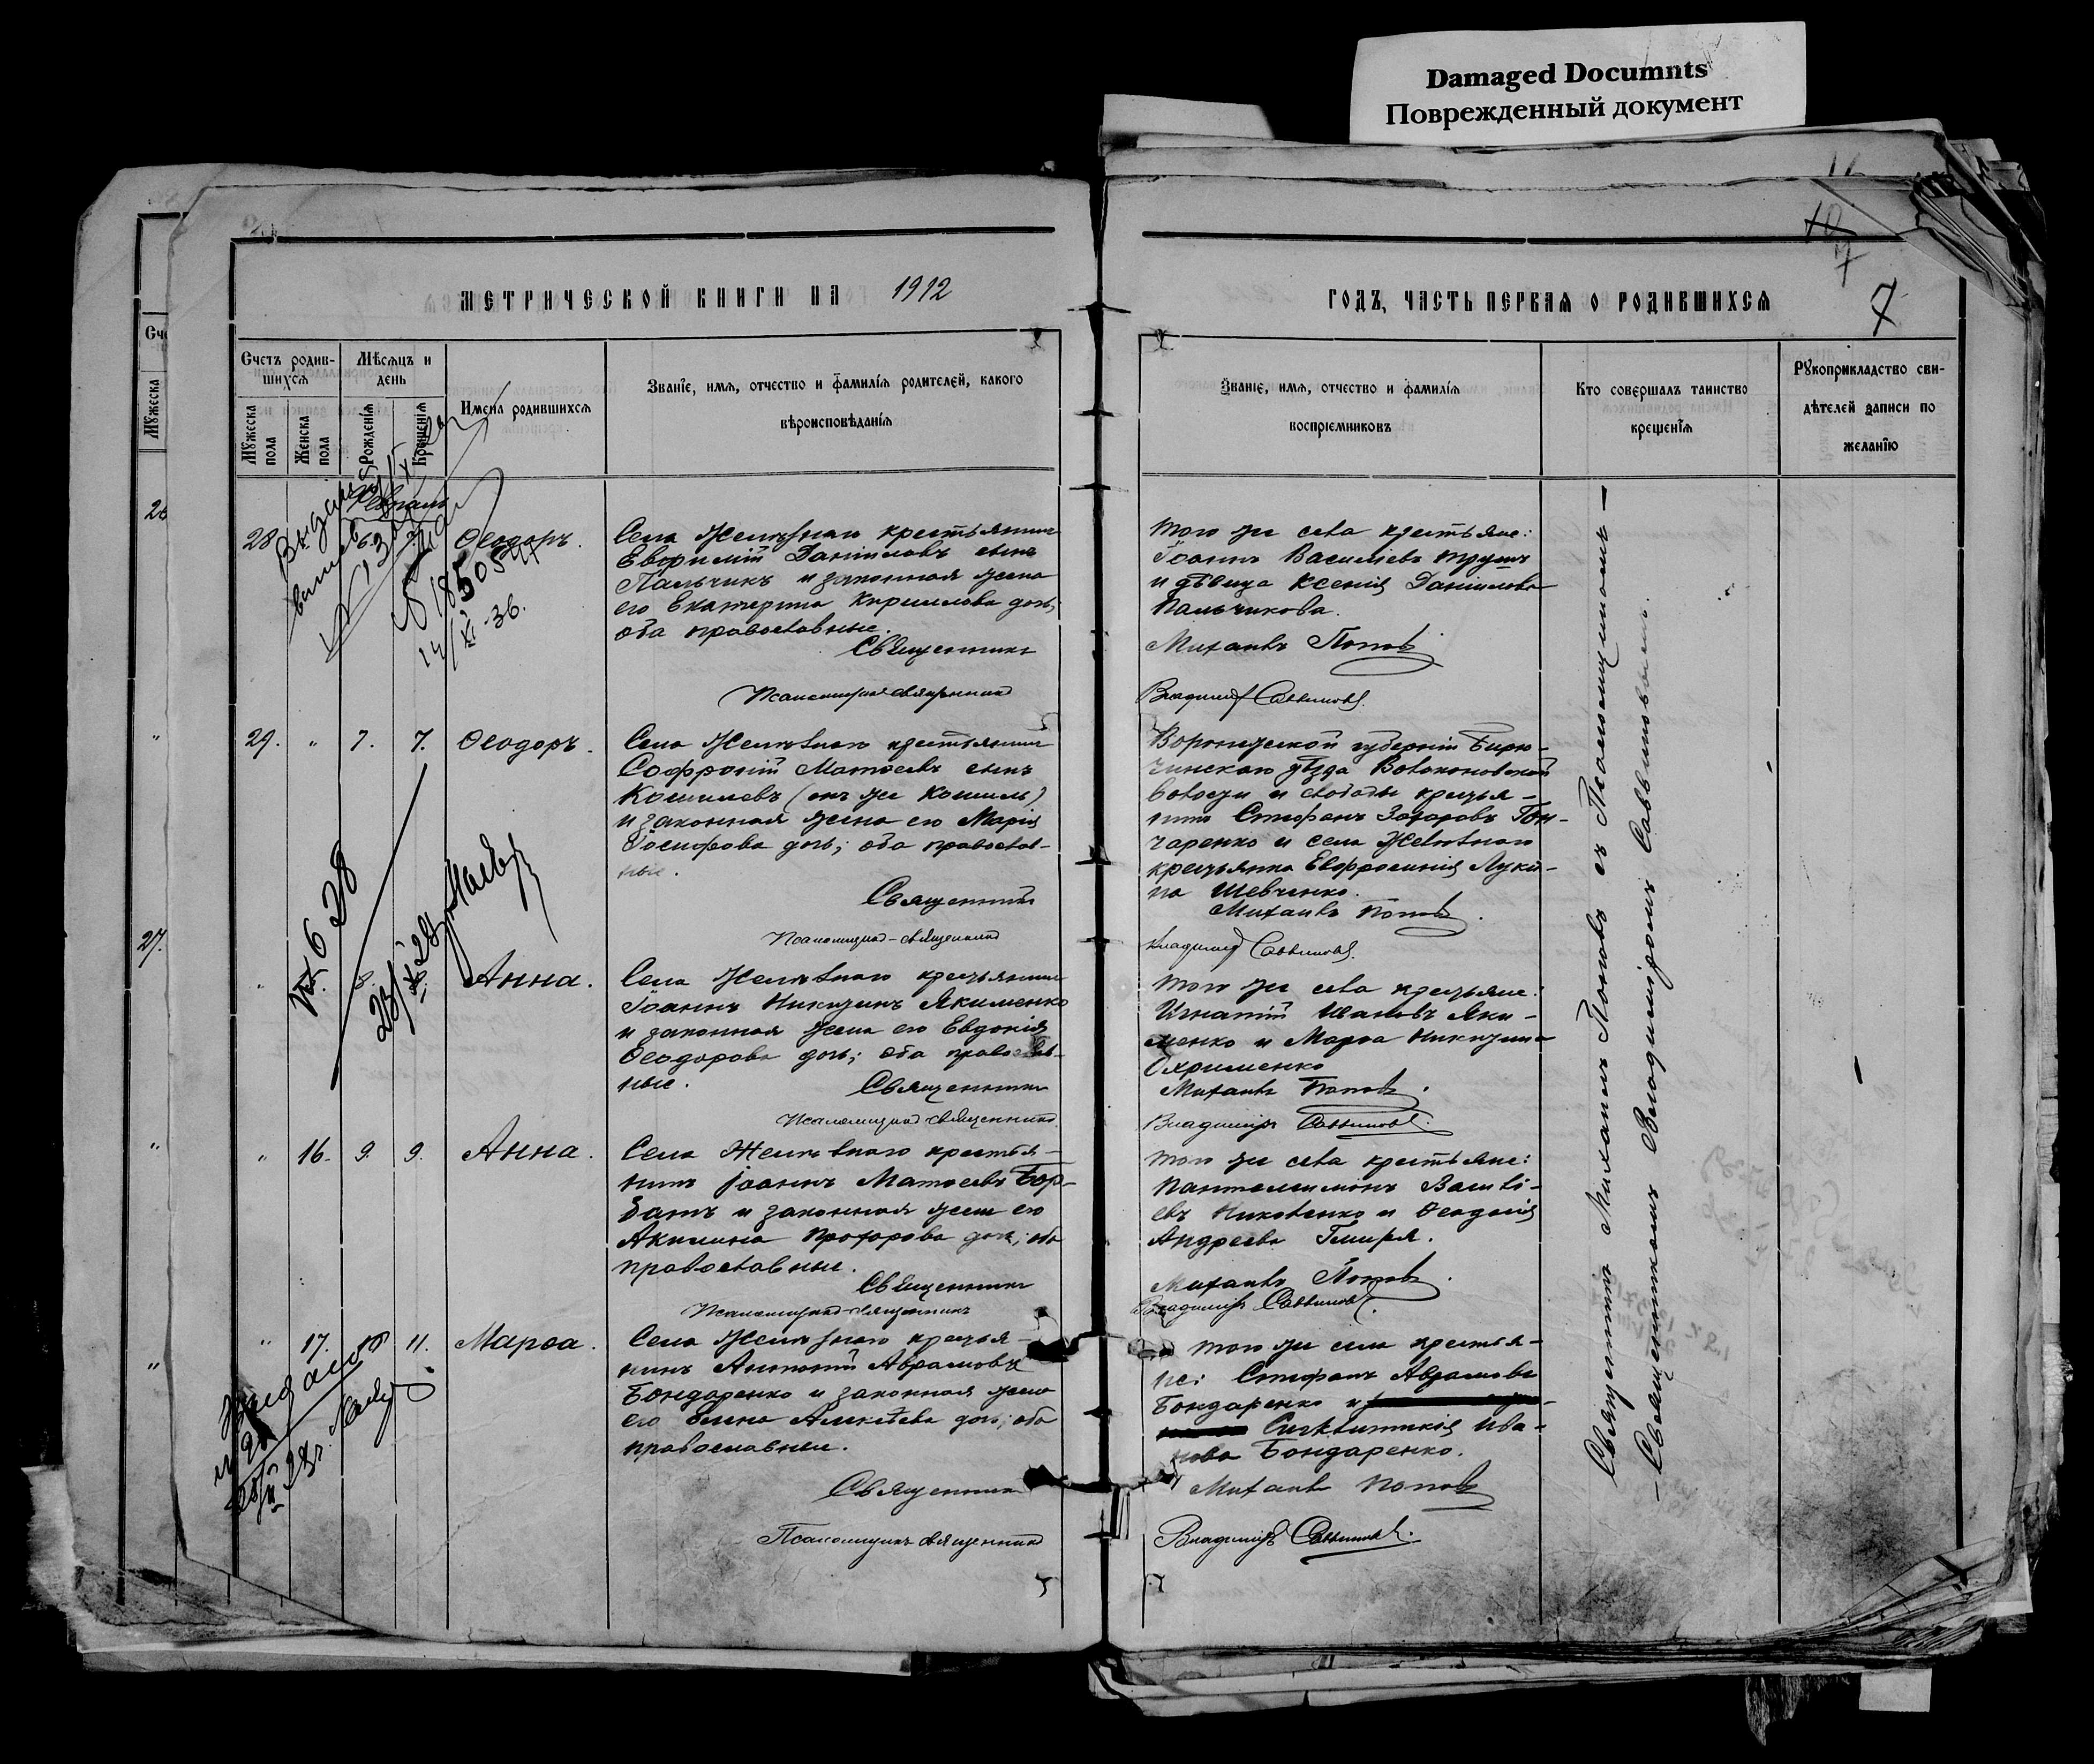 Damaged Documnts
Поврежденный документ
МЕТРИЧЕСКОЙ КНИГИ НА 1912
ГОДЪ, ЧАСТЬ ПЕРВАЯ О РОДИВШИХСЯ
7
Счетъ родив-
шихся
Мѣсяцъ и
день
Мужеска
пола
Женска
пола
Рожденія
Крещенія
Имена родившихся
Званіе, имя, отчество и фамилія родителей, какого
вѣроисповѣданія
Званіе, имя, отчество и фамилія
воспріемниковъ
Кто совершалъ таинство
крещенія
Рукоприкладство сви-
дѣтелей записи по
желанію
Февраль
28
6
Ѳеодоръ.
Села Желѣзнаго крестьянинъ
Евфимій Даніиловъ сынъ
Пальчикъ и законная жена
его Екатерина Кириллова дочь,
оба православные.
Священникъ
Псаломщикъ священникъ
Того же села крестьяне:
Іоаннъ Василіевъ
и дѣвица Ксенія Даніилова
Пальчикова.
Михаилъ Поповъ
Владиміръ Саввиновъ.
29.
"
7.
7.
Ѳеодоръ.
Села Желѣзнаго крестьянинъ
Софроній Матѳеевъ сынъ
Кошилевъ (онъ же Кошиль)
и законная жена его Марія
Іосифова дочь; оба православ-
ные.
Священникъ
Псаломщикъ-священникъ
Воронежской губерніи Бирю-
чинскаго уѣзда Волоконовской
волости и слободы крестья-
нинъ Стефанъ Захаровъ Гон-
чаренко и села Желѣзнаго
крестьянка Евфросинія Луки-
на Шевченко.
Михаилъ Поповъ.
Владиміръ Саввиновъ.
8.
Анна.
Села Желѣзнаго крестьянинъ
Іоаннъ Никитинъ Якименко
и законная жена его Евдокія
Ѳеодорова дочь; оба православ-
ные.
Священникъ
Псаломщикъ священникъ
Того же села крестьяне:
Игнатій Ивановъ Яки-
менко и Марѳа Никитина
Охрименко
Михаилъ Поповъ.
Владиміръ Саввиновъ.
"
16.
9.
9.
Анна.
Села Желѣзнаго крестья-
нинъ Іоаннъ Матѳеевъ Бор-
батъ и законная жена его
Акилина Прохорова дочь; оба
православные.
Священникъ
Псаломщикъ-священникъ
Того же села крестьяне:
Пантелеимонъ Василі-
евъ Николенко и Ѳеодосія
Андреева Гмиря.
Михаилъ Поповъ.
Владиміръ Саввиновъ.
"
17.
10
11.
Марѳа.
Села Желѣзнаго крестья-
нинъ Антоній Аврамовъ
Бондаренко и законная жена
его Елена Алексѣева дочь; оба
православные.
Священникъ
Псаломщикъ священникъ
Того же села крестья-
не: Стефанъ Аврамовъ
Бондаренко и
Синклитикія Ива-
нова Бондаренко.
Михаилъ Поповъ
Владиміръ Саввиновъ.
Священникъ Михаилъ Поповъ съ Псаломщикомъ —
— Священникомъ Владиміромъ Саввиновымъ.